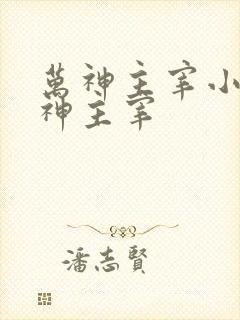 萬神主宰小
神主宰
潘志賢